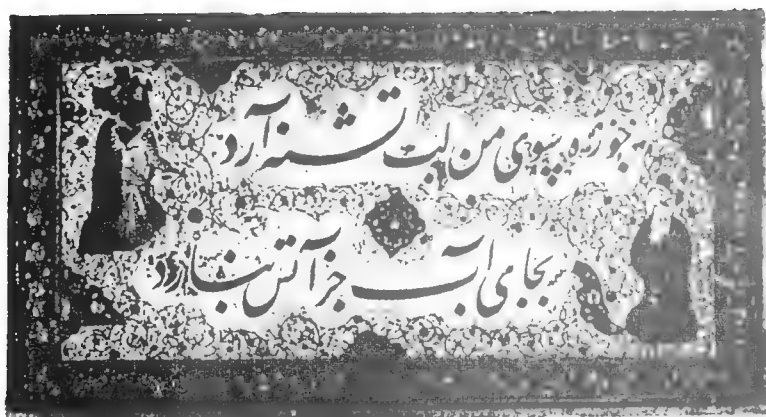 چو ره بسوی من لب تشنه آرد
بجای آب جز آتش نبارد